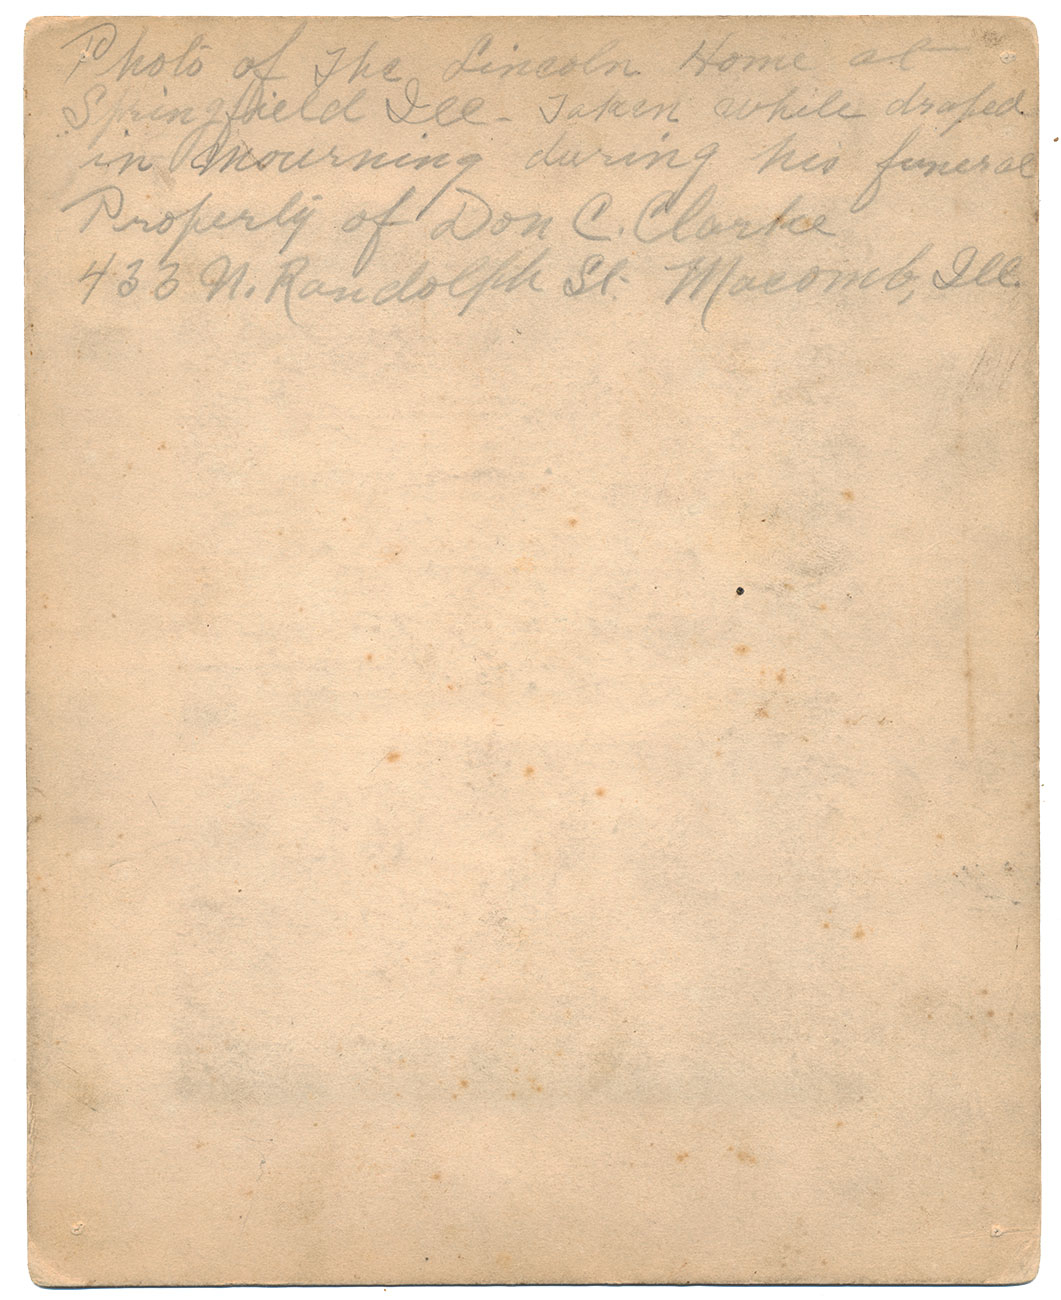 Photo of The Lincoln Home at
Springfield Ill - Taken while draped
in Mourning during his funeral
Property of Don C. Clarke
433 N. Randolph St. Macomb, Ill.